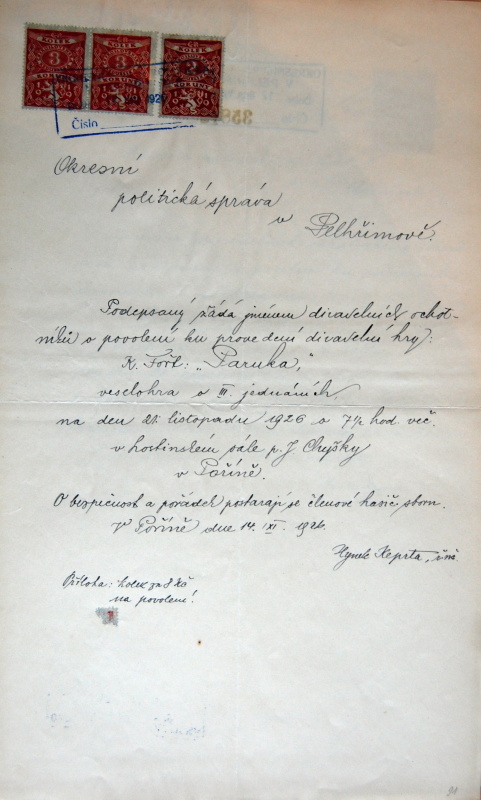 KOLEK KOLEK KOLEK
3 3 2
KORUNY KORUNY KORUNY
Číslo
Okresní
politická správa
v Pelhřimově.
Podepsaný žádá jménem divadelních ochot-
níků o povolení ku provedení divadelní hry:
K. Fořt: „Paruka,"
veselohra o III. jednáních,
na den 21. listopadu 1926 o 7½ hod. več.
v hostinském sále p. J. Chyšky
v Poříně.
O bezpečnost a pořádek postarají se členové hasič. sboru.
V Poříně dne 14./XI. 1926.
Hynek Keprta,
Příloha: kolek za 8 Kč
na povolení!